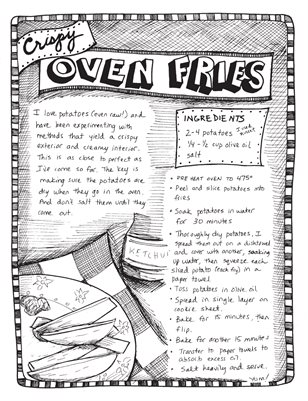 Crispy
OVEN FRIES
I love potatoes (even raw!) and
have been experimenting with
methods that yield a crispy
exterior and creamy interior.
This is as close to perfect as
I've come so far. The key is
making sure the potatoes are
dry when they go in the oven.
And don't salt them until they
come out.
INGREDIENTS
2-4 potatoes
1/4 - 1/2 cup olive oil
salt
KETCHUP
• PRE HEAT OVEN TO 475°
• Peel and slice potatoes into
fries
• Soak potatoes in water
for 30 minutes
• Thoroughly dry potatoes, I
spread them out on a dishtowel
and cover with another, soaking
up water, then squeeze each
sliced potato (each fry) in a
paper towel
• Toss potatoes in olive oil
• Spread in single layer on
cookie sheet.
• Bake for 15 minutes, then
flip.
• Bake for another 15 minutes
• Transfer to paper towels to
absorb excess oil.
• Salt heavily and serve.
YUM!